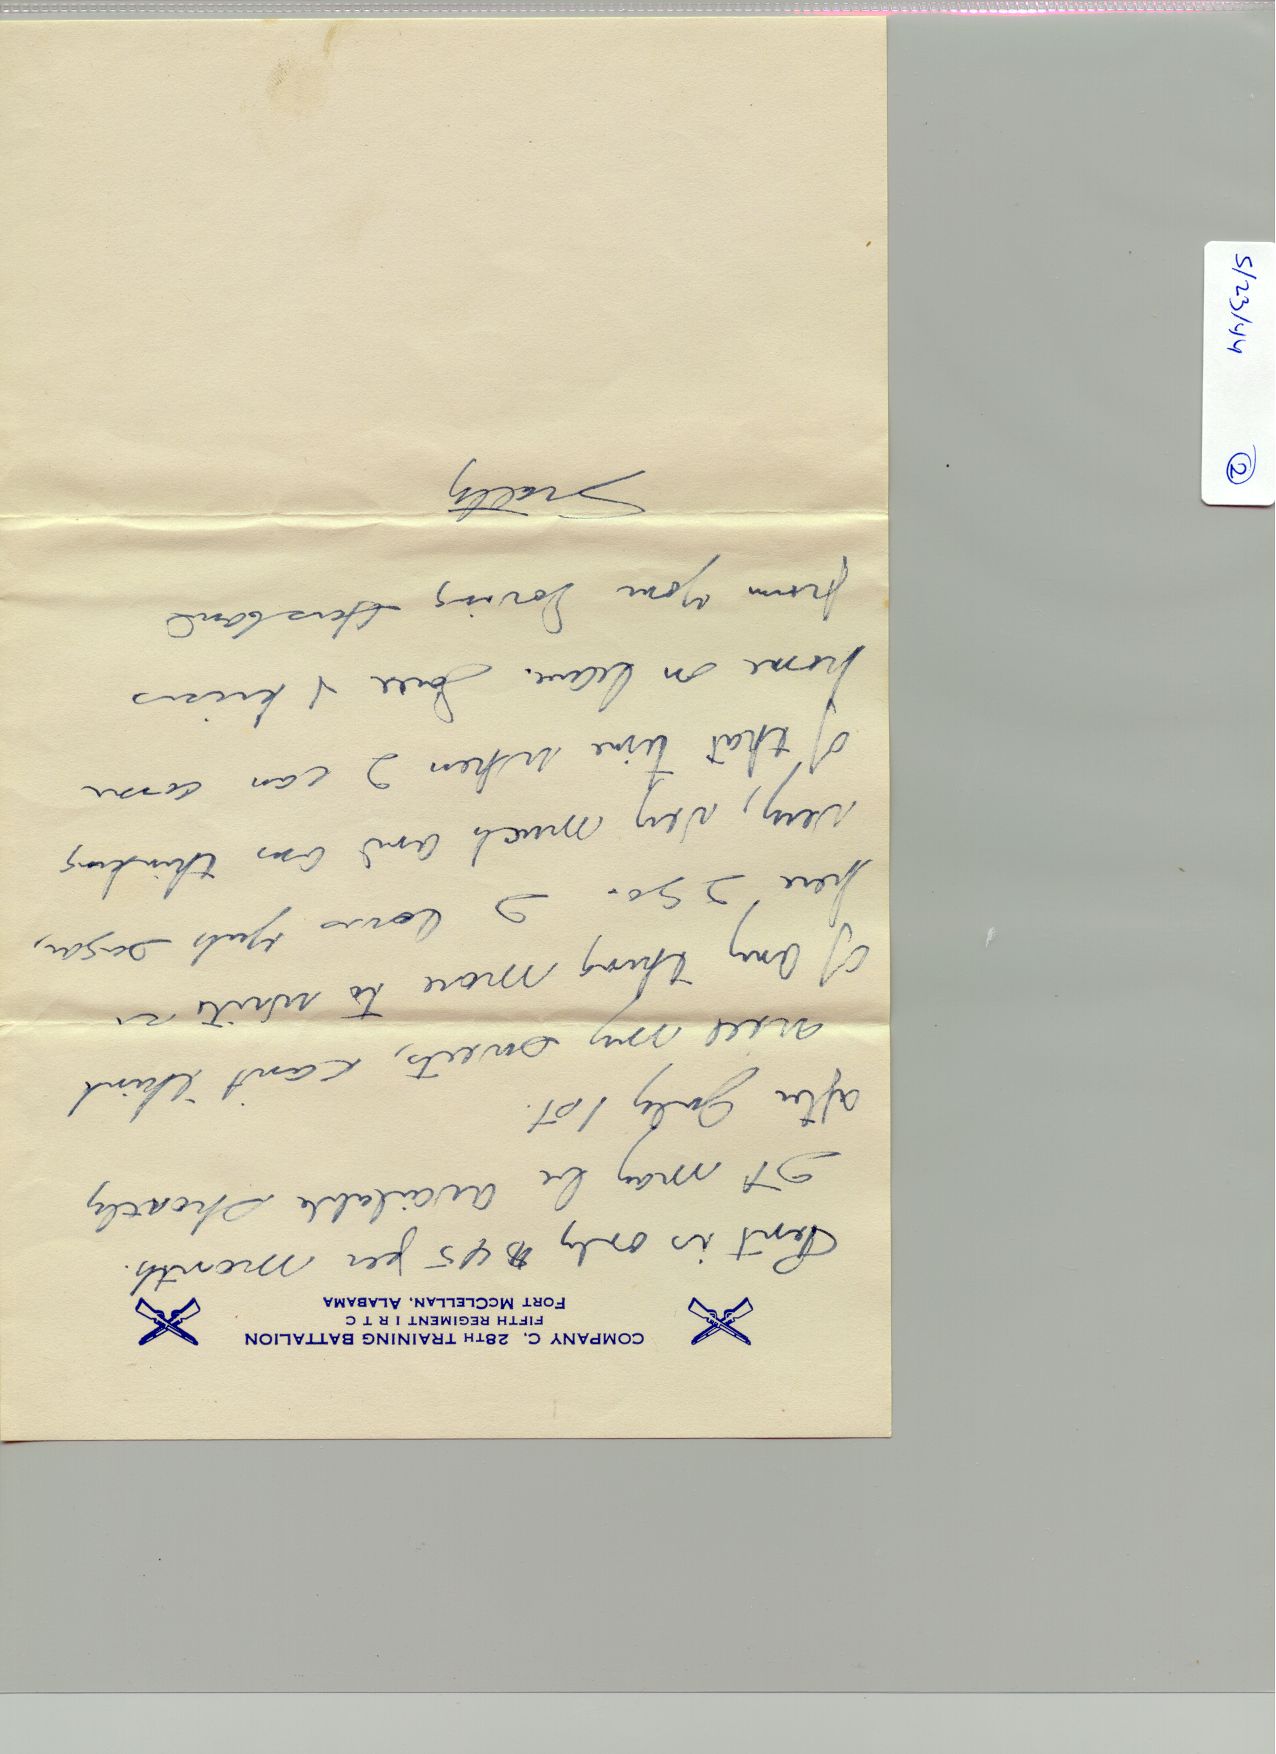 COMPANY C, 28TH TRAINING BATTALION
FIFTH REGIMENT I R T C
FORT MCCLELLAN, ALABAMA
Rent is only $45 per month.
It may be available shortly
after July 1st.
Well my sweets, can't think
of any thing more to write so
here I go. I love you sugar,
very, very much and am thinking
of that time when I can come
home on leave. Love & kisses
from your loving Husband
Smitty
5/23/44
2